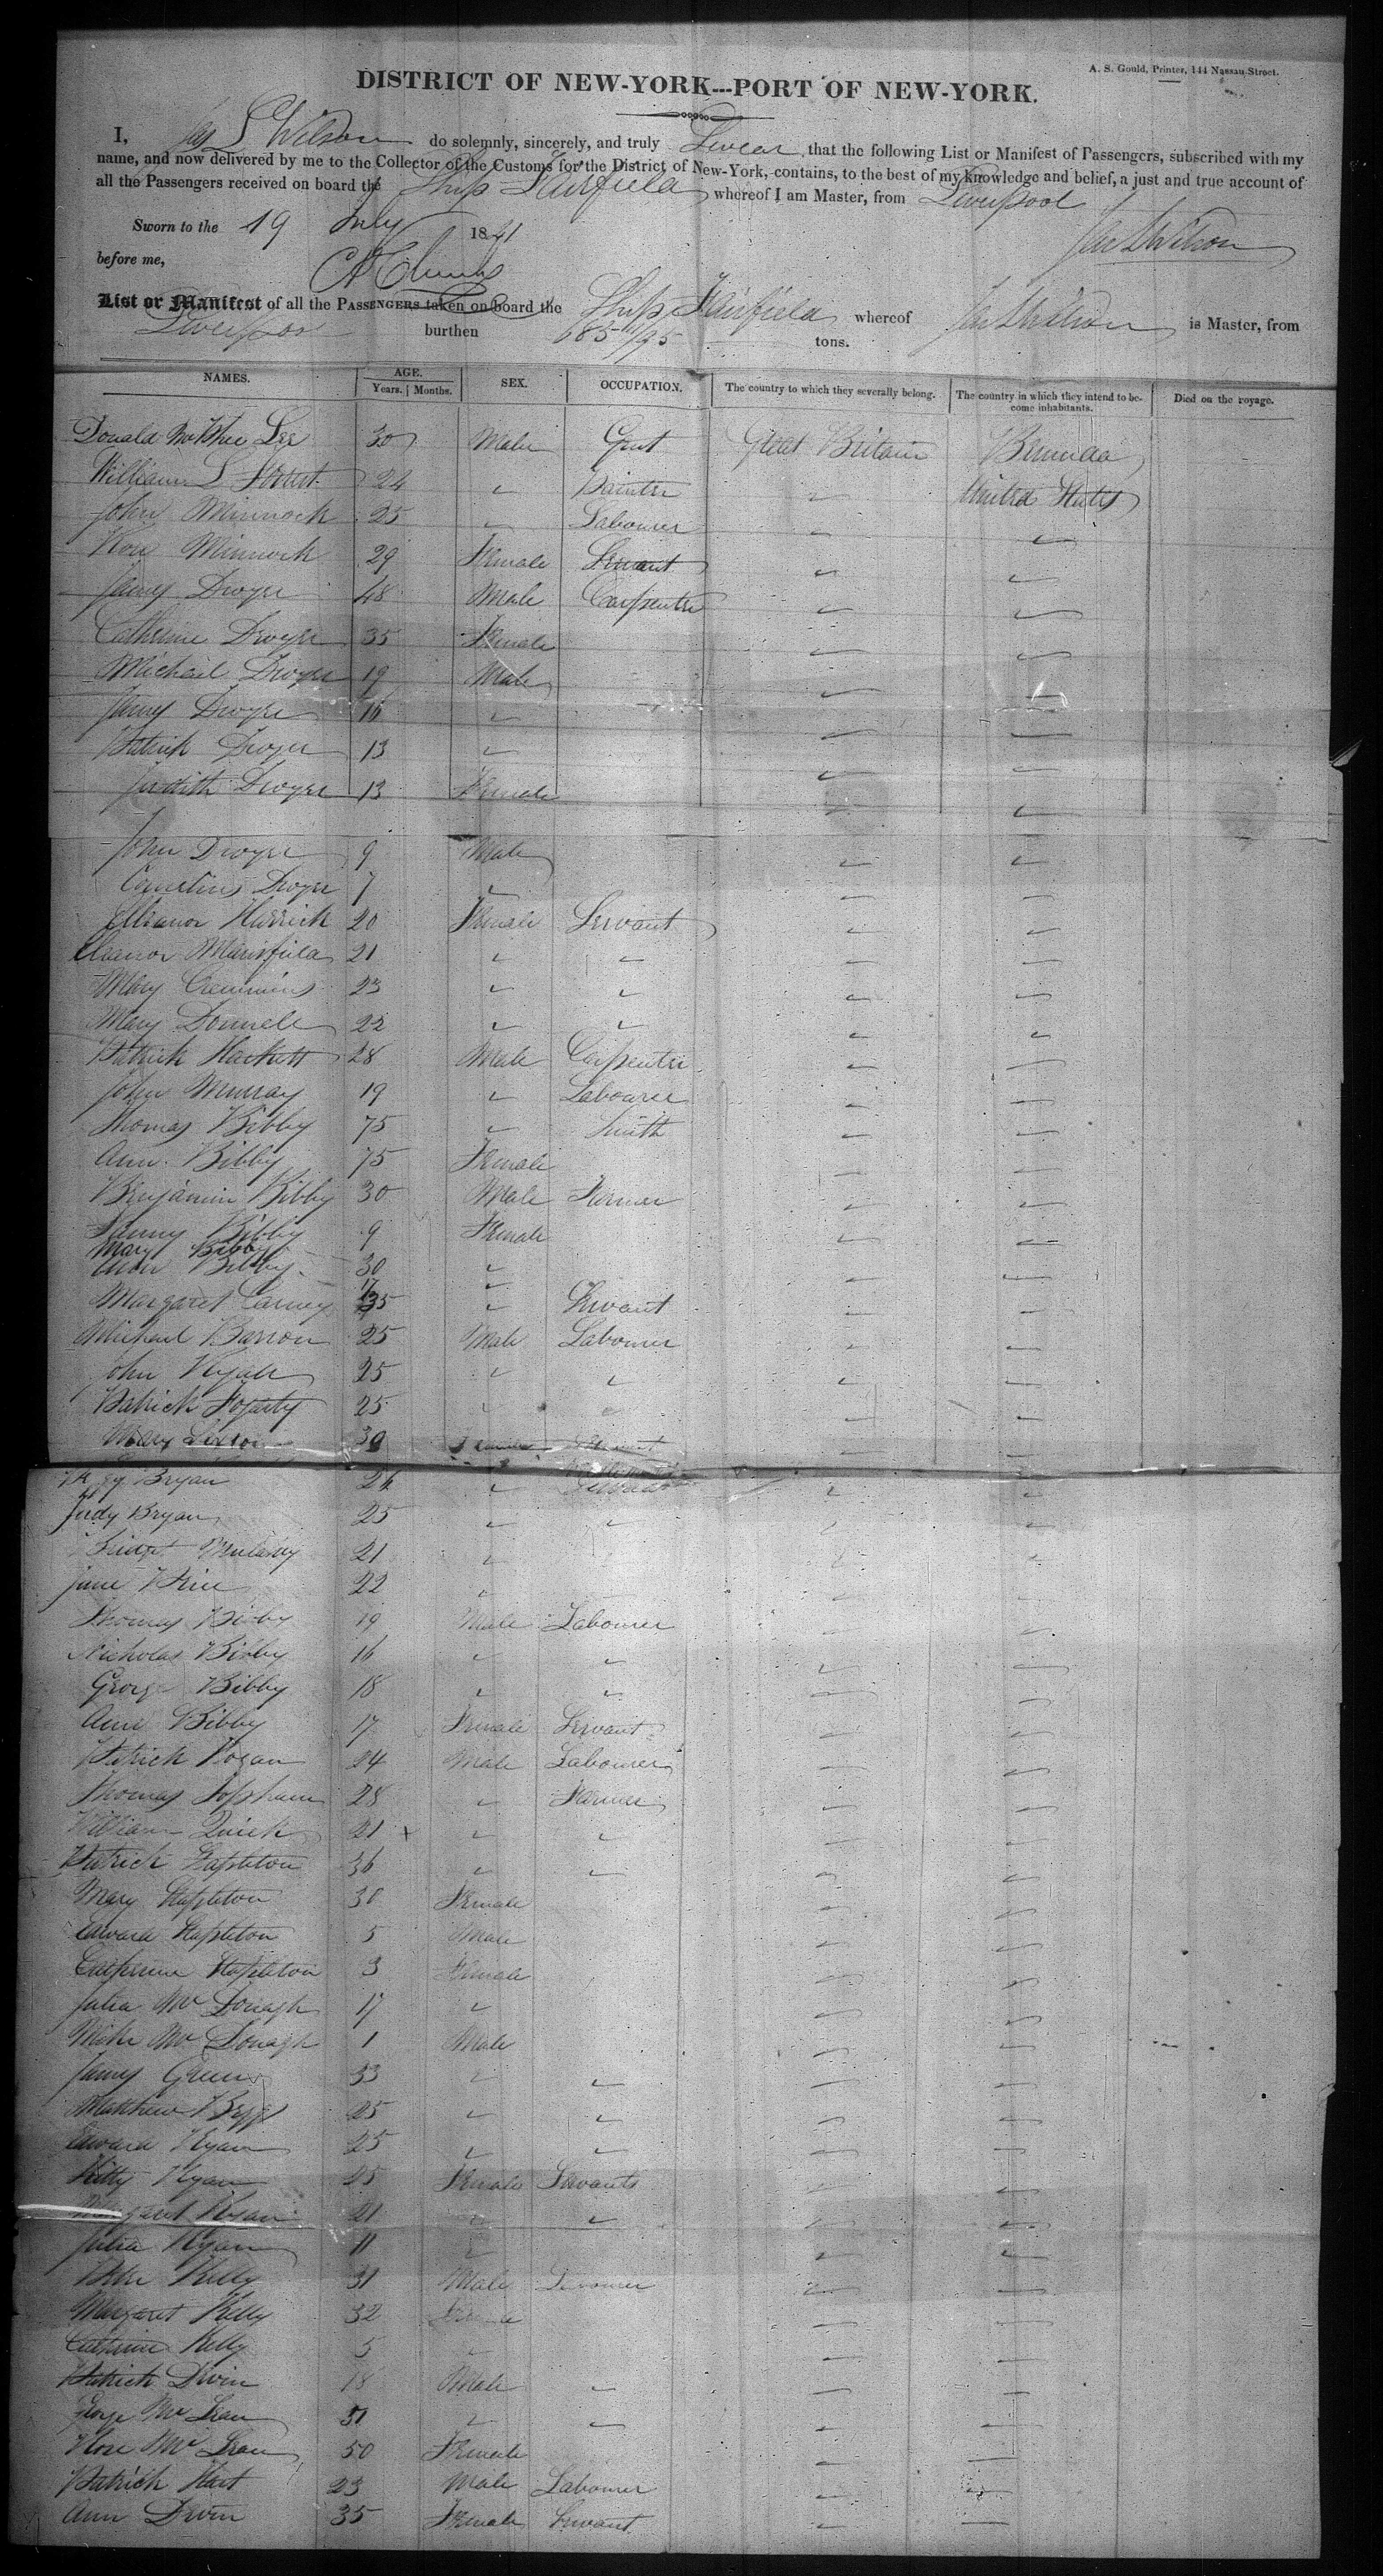 A. S. Gould, Printer, 144 Nassau Street.
DISTRICT OF NEW-YORK---PORT OF NEW-YORK.
I, Jas S Wilson do solemnly, sincerely, and truly Swear that the following List or Manifest of Passengers, subscribed with my
name, and now delivered by me to the Collector of the Customs for the District of New-York, contains, to the best of my knowledge and belief, a just and true account of
all the Passengers received on board the Ship Fairfield whereof I am Master, from Liverpool
Sworn to the 19 July 1841 Jas S Wilson
before me,
List or Manifest of all the PASSENGERS taken on board the Ship Fairfield whereof Jas S Wilson is Master, from
Liverpool burthen 685 /95 tons.
NAMES. AGE. SEX. OCCUPATION. The country to which they severally belong. The country in which they intend to be-come inhabitants. Died on the voyage.
Years. Months.
Donald Lee 30 Male Gent Great Britain Bermuda
William S 24 " Painter " United States
John Minnock 25 " Labourer " "
Rose Minnock 29 Female Servant " "
James Dwyer 48 Male Carpenter " "
Catherine Dwyer 35 Female " "
Michael Dwyer 19 Male " "
James Dwyer 16 " " "
Patrick Dwyer 13 " " "
Judith Dwyer 13 Female " "
John Dwyer 9 Male " "
Cornelius Dwyer 7 " " "
Elleanor Harrick 20 Female Servant " "
Eleanor Mansfield 21 " " " "
Mary Cremmins 23 " " " "
Mary Donnell 22 " " " "
Patrick Hackett 28 Male Carpenter " "
John Murray 19 " Labourer " "
Thomas Bibby 75 " Smith " "
Ann Bibby 75 Female " "
Benjamin Bibby 30 Male Farmer " "
Fanny Bibby 9 Female " "
Mary Bibby
Ann Bibby 30 " " "
17 "
Margaret Carney 35 " Servant " "
Michael Barron 25 Male Labourer " "
John Ryall 25 " " " "
Patrick Fogarty 25 " " " "
Mary 30 Female Servant " "
Bryan 26 " Servant " "
Judy Bryan 25 " " " "
Bridget Mulany 21 " " "
Jane Price 22 " " "
Thomas Bibby 19 Male Labourer " "
Nicholas Bibby 16 " " " "
George Bibby 18 " " " "
Ann Bibby 17 Female Servant " "
Patrick Hogan 24 Male Labourer " "
Thomas Topham 28 " Farmer " "
William Quirk 21 x " " " "
Patrick Stapleton 36 " " " "
Mary Stapleton 30 Female " "
Edward Stapleton 5 Male " "
Catherine Stapleton 3 Female " "
Julia Mc Donagh 17 " " "
Mike Mc Donagh 1 Male " "
James Green 33 " " " "
Matthew 25 " " " "
Edward Ryan 25 " " " "
Kitty Ryan 25 Female Servants " "
Margaret Ryan 21 " " " "
Julia Ryan 11 " " "
Peter Kelly 31 Male Labourer " "
Margaret Kelly 32 Female " "
Catherine Kelly 5 " " "
Patrick Devin 18 Male " " "
George Mc Lean 51 " " " "
Rose Mc Lean 50 Female " "
Patrick Hart 23 Male Labourer " "
Ann Devin 35 Female Servant " "